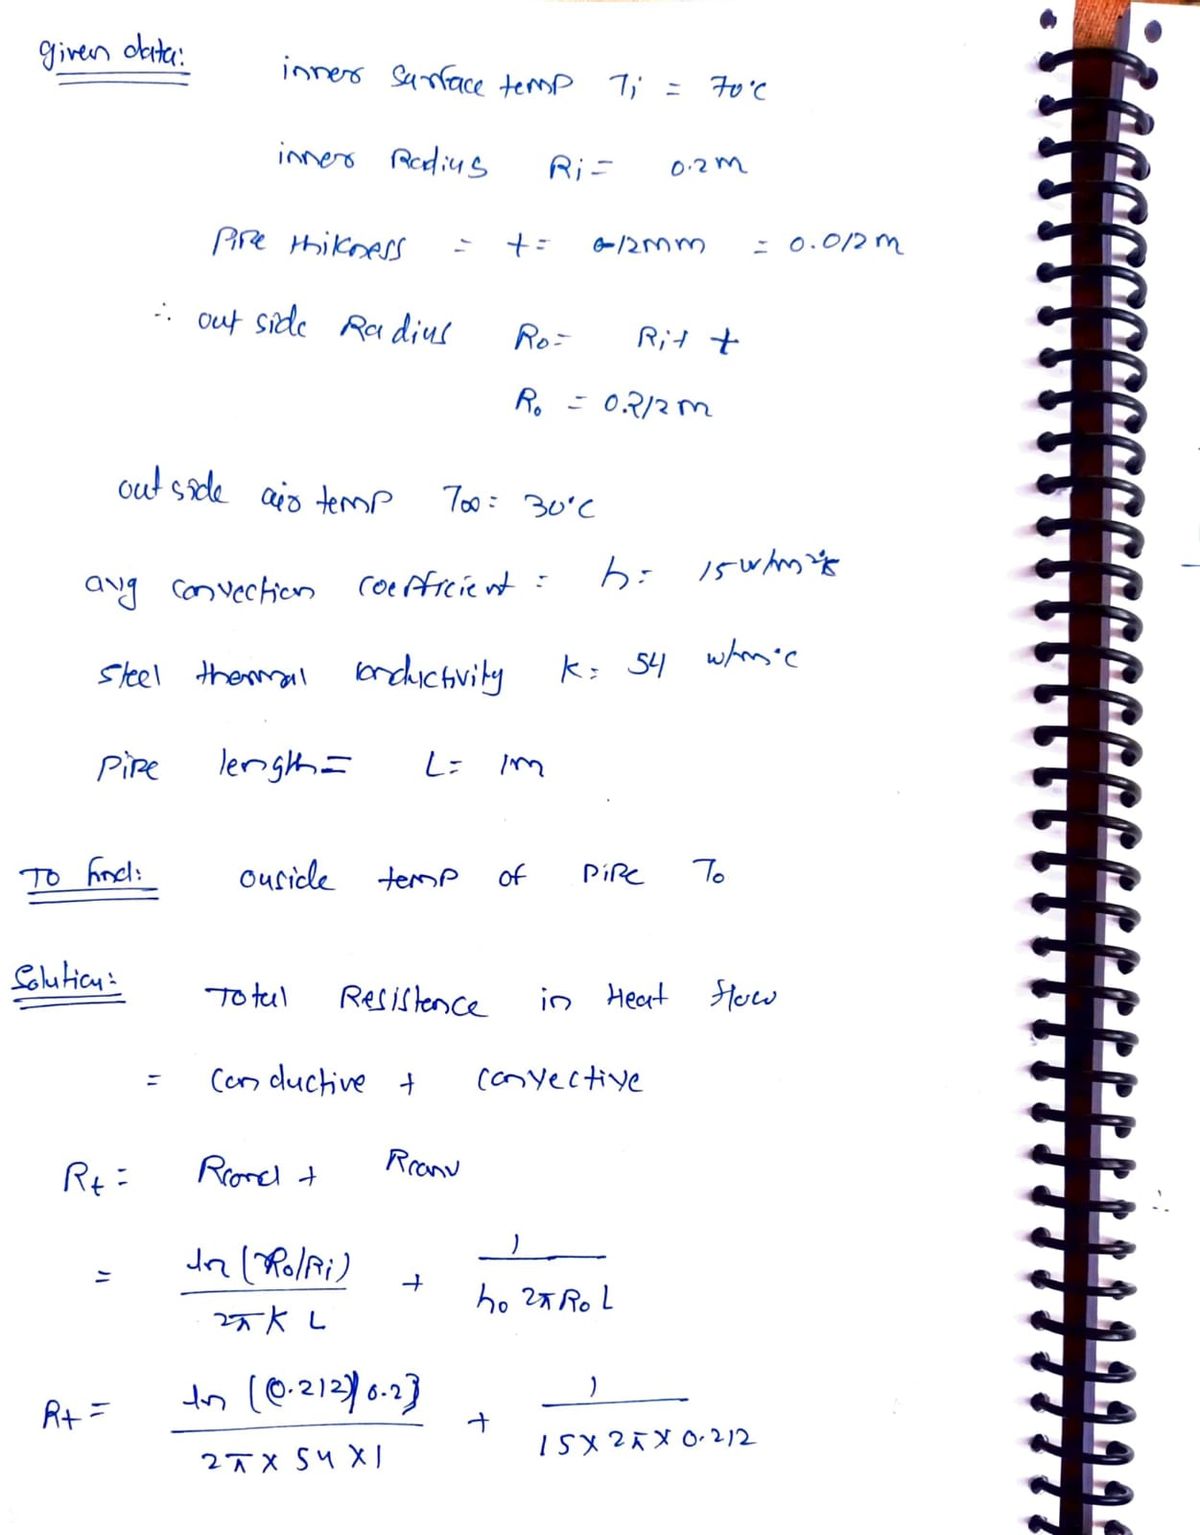 given data:
inner surface temp Ti = 70°C
inner Radius Ri = 0.2m
Pipe thikness = t = 12mm = 0.012m
∴ out side Radius Ro = Ri + t
Ro = 0.212m
out side air temp T∞ = 30°C
avg convection coefficient = h = 15 w/m²k
Steel thermal conductivity K = 54 w/m°C
Pipe length = L = 1m
To find: ouside temp of pipe To
Solution: Total Resistence in Heat flow
= Conductive + convective
Rt = Rcond + Rconv
= ln (Ro/Ri) / 2πKL + 1 / ho 2π Ro L
Rt = ln {0.212/0.2} / 2π × 54 × 1 + 1 / 15 × 2π × 0.212